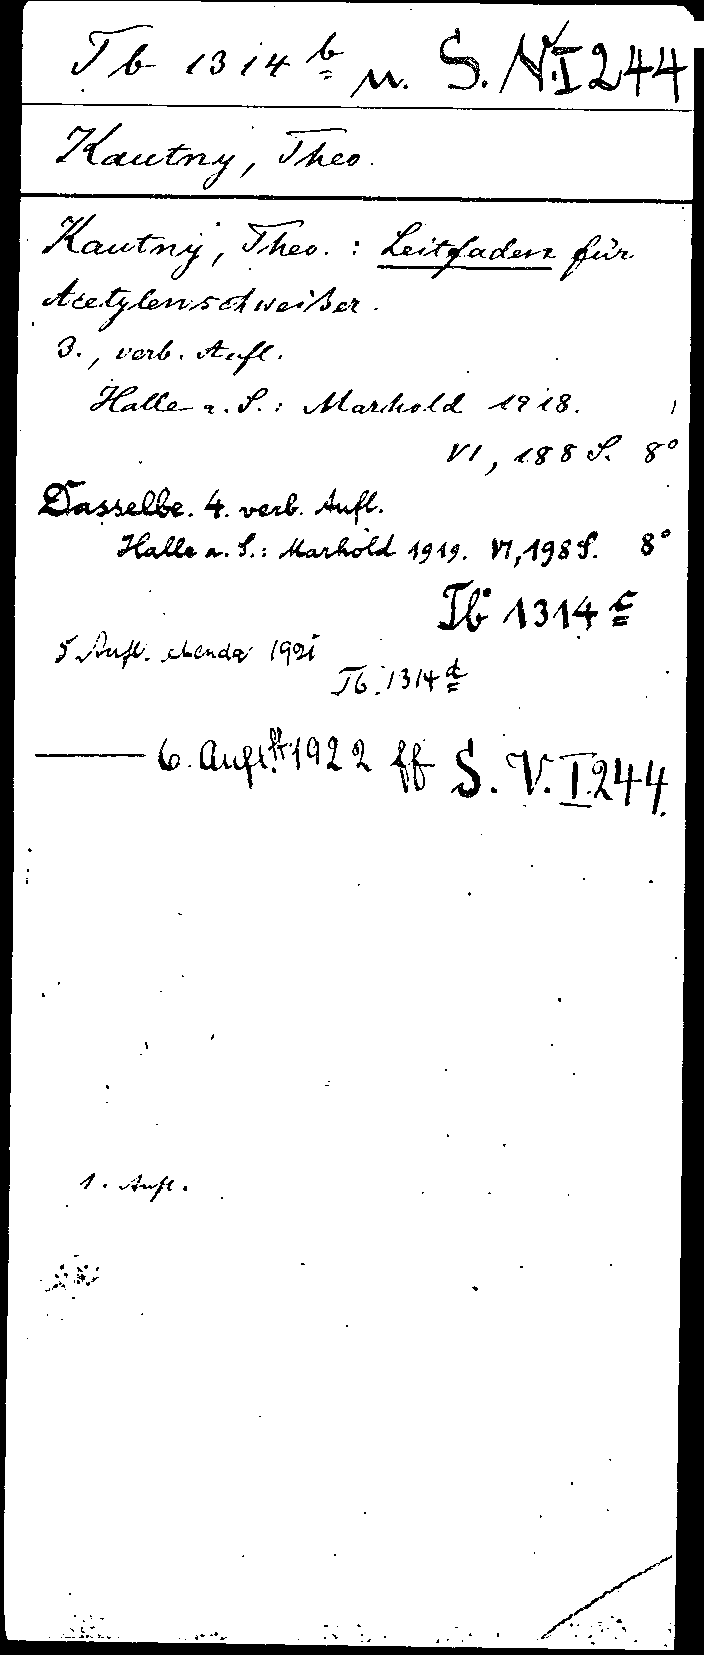 Tb 1314 b u. S. V. I 244
Kautny, Theo.
Kautny, Theo. : Leitfaden für
Acetylenschweißer.
3., verb. Aufl.
Halle a. S.: Marhold 1918.
VI, 188 S. 8°
Dasselbe. 4. verb. Aufl.
Halle a. S.: Marhold 1919. VI, 198 S. 8°
Tb 1314 c
5. Aufl. ebenda 1921
Tb. 1314 d
—— 6. Aufl. 1922 ff S. V. I 244
1. Aufl.